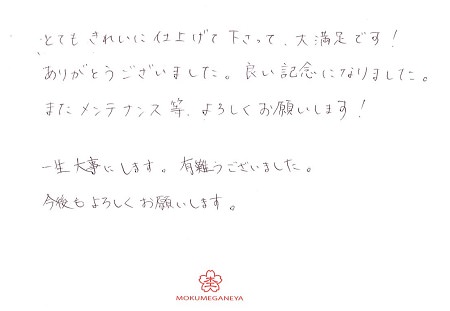 とてもきれいに仕上げて下さって、大満足です！
ありがとうございました。良い記念になりました。
またメンテナンス等、よろしくお願いします！
一生大事にします。有難うございました。
今後もよろしくお願いします。
MOKUMEGANEYA